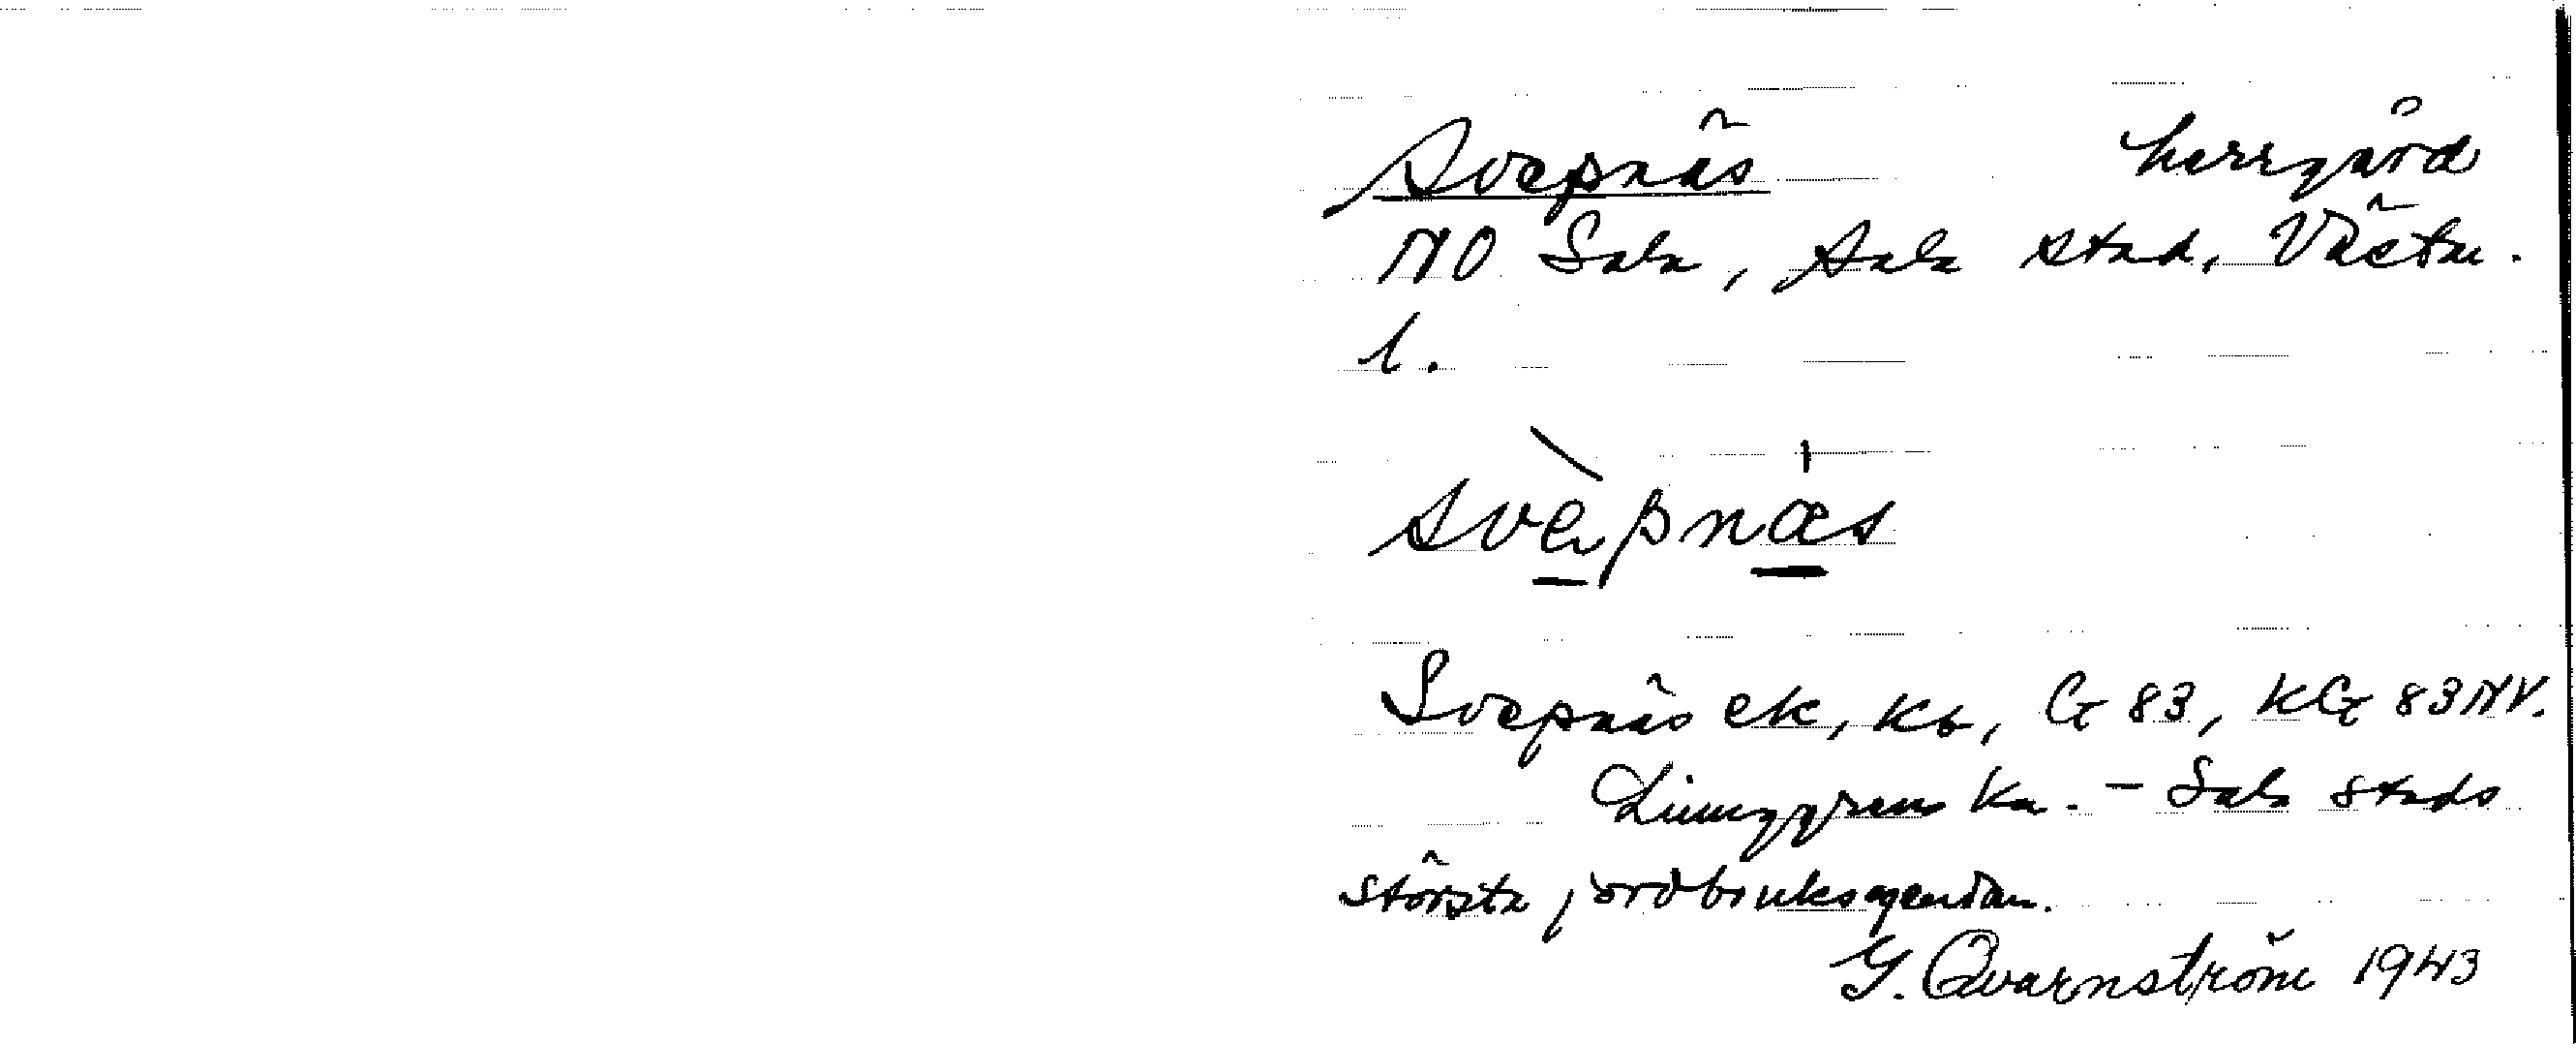 Svepnäs herrgård
NO Sala, Sala stad, Västm.
l.
svèpnäs
Svepnäs ek, Kb, G 83, KG 83 NV.
Ljunggrens Ka. – Sala stads
största jordbruksegendom.
G. Qvarnström 1943